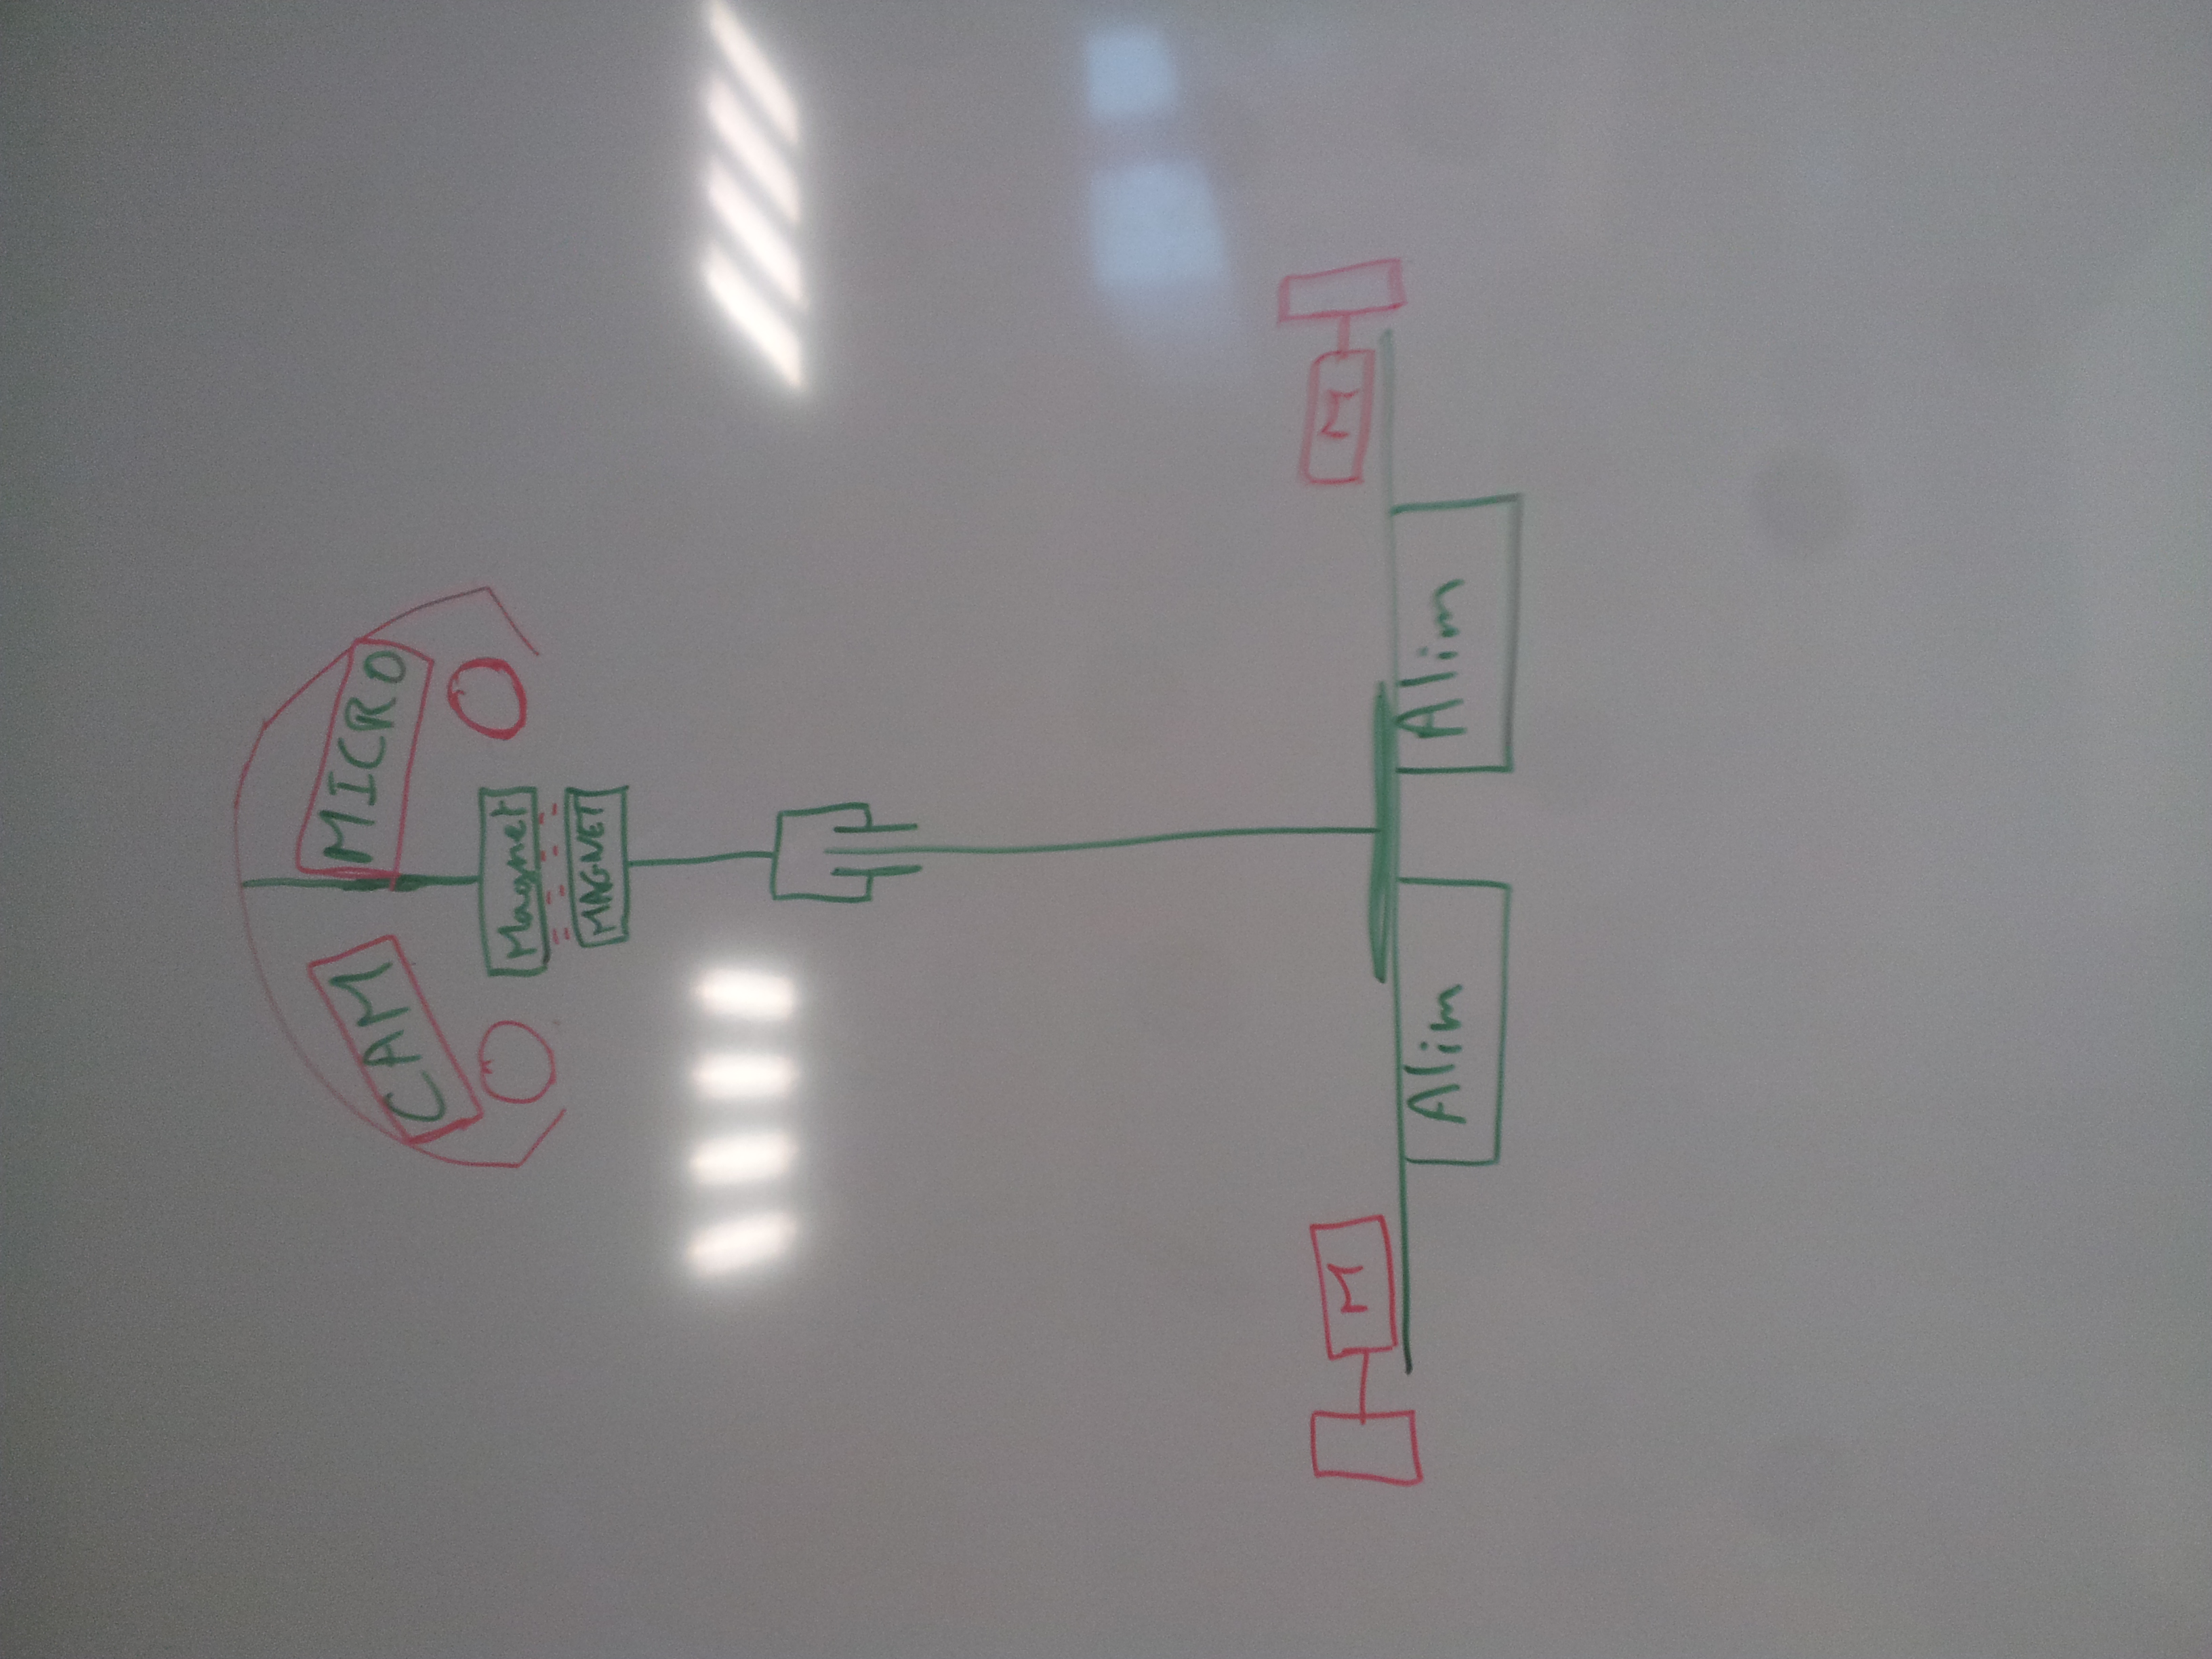 CAM
MICRO
Magnet
MAGNET
M
M
Alim
Alim